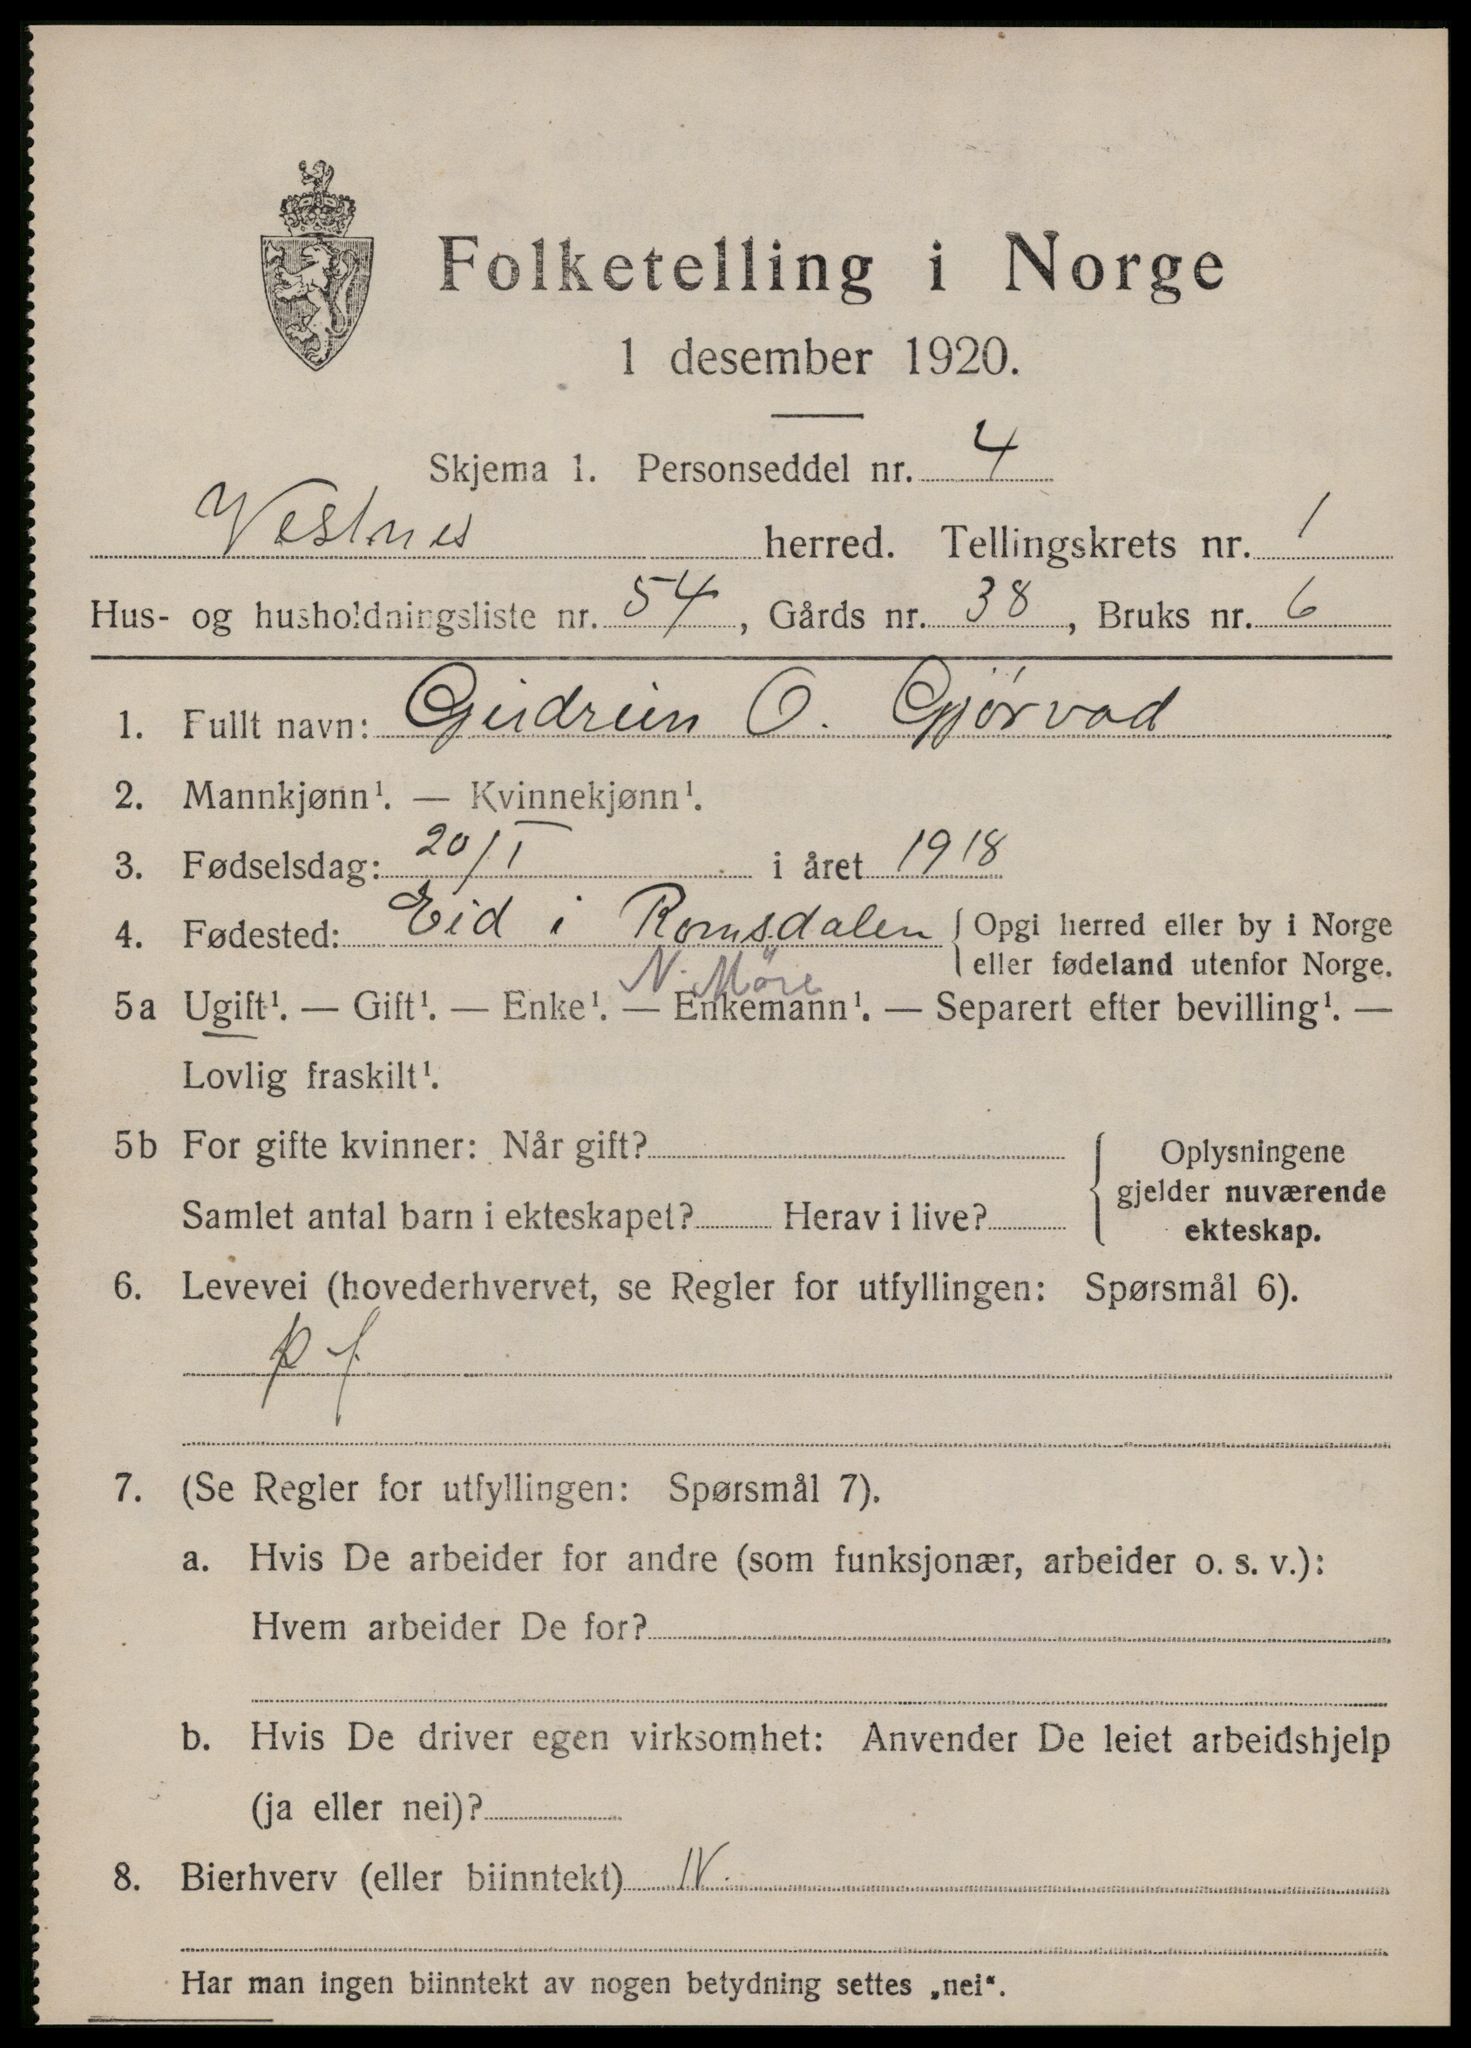 Folketelling i Norge
1 desember 1920.
Skjema 1. Personseddel nr. 4
Vestnes herred. Tellingskrets nr. 1
Hus- og husholdningsliste nr. 54, Gårds nr. 38, Bruks nr. 6
1. Fullt navn: Gudrun O. Gjørvad
2. Mannkjønn¹. — Kvinnekjønn¹.
3. Fødselsdag: 20/I i året 1918
4. Fødested: Eid i Romsdalen { Opgi herred eller by i Norge
eller fødeland utenfor Norge.
N. Møre
5a Ugift¹. — Gift¹. — Enke¹. — Enkemann¹. — Separert efter bevilling¹. —
Lovlig fraskilt¹.
5b For gifte kvinner: Når gift? { Oplysningene
gjelder nuværende
Samlet antal barn i ekteskapet? Herav i live?
ekteskap.
6. Levevei (hovederhvervet, se Regler for utfyllingen: Spørsmål 6).
p f
7. (Se Regler for utfyllingen: Spørsmål 7).
a. Hvis De arbeider for andre (som funksjonær, arbeider o. s. v.):
Hvem arbeider De for?
b. Hvis De driver egen virksomhet: Anvender De leiet arbeidshjelp
(ja eller nei)?
8. Bierhverv (eller biinntekt) N.
Har man ingen biinntekt av nogen betydning settes „nei“.